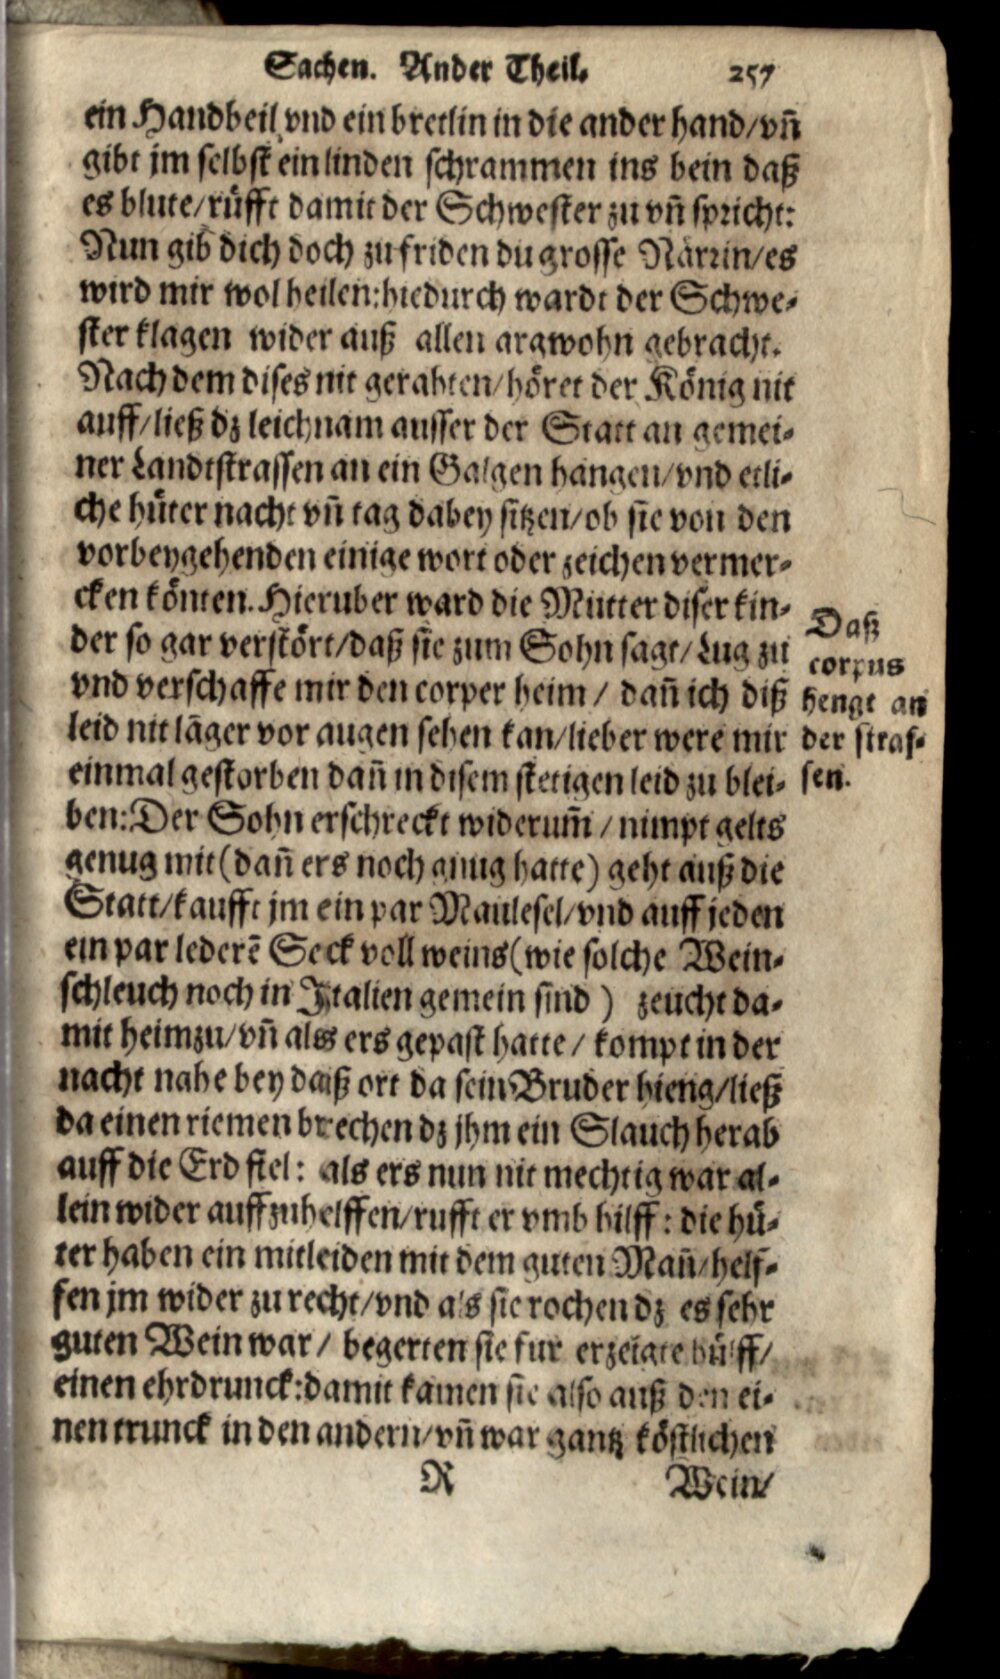 Sachen. Ander Theil. 257
ein Handbeil vnd ein bretlin in die ander hand/vñ
gibt jm selbst ein linden schrammen ins bein daß
es blute/rüfft damit der Schwester zu vñ spricht:
Nun gib dich doch zu friden du grosse Närrin/es
wird mir wol heilen: hiedurch wardt der Schwe-
ster klagen wider auß allen argwohn gebracht.
Nach dem dises nit gerahten/höret der König nit
auff/ließ dz leichnam ausser der Statt an gemei-
ner Landtstrassen an ein Galgen hangen/vnd etli-
che hüter nacht vñ tag dabey sitzen/ob sie von den
vorbeygehenden einige wort oder zeichen vermer-
cken könten. Hieruber ward die Mutter diser kin-
der so gar verstört/daß sie zum Sohn sagt/Lug zu
vnd verschaffe mir den corper heim / dañ ich diß
leid nit lāger vor augen sehen kan/lieber were mir
einmal gestorben dañ in disem stetigen leid zu blei-
ben: Der Sohn erschreckt widerum̃ / nimpt gelts
genug mit (dañ ers noch gnug hatte) geht auß die
Statt/kaufft jm ein par Maulesel/vnd auff jeden
ein par lederē Seck voll weins (wie solche Wein-
schleuch noch in Italien gemein sind ) zeucht da-
mit heimzu/vñ als ers gepast hatte / kompt in der
nacht nahe bey daß ort da sein Bruder hieng/ließ
da einen riemen brechen dz jhm ein Slauch herab
auff die Erd fiel: als ers nun nit mechtig war al-
lein wider auffzuhelffen/rufft er vmb hilff: die hü-
ter haben ein mitleiden mit dem guten Mañ/helf-
fen jm wider zu recht/vnd als sie rochen dz es sehr
guten Wein war / begerten sie fur erzeigte hülff/
einen ehrdrunck: damit kamen sie also auß den ei-
nen trunck in den andern/vñ war gantz köstlichen
R Wein/
Daß
corpus
hengt an
der stras-
sen.